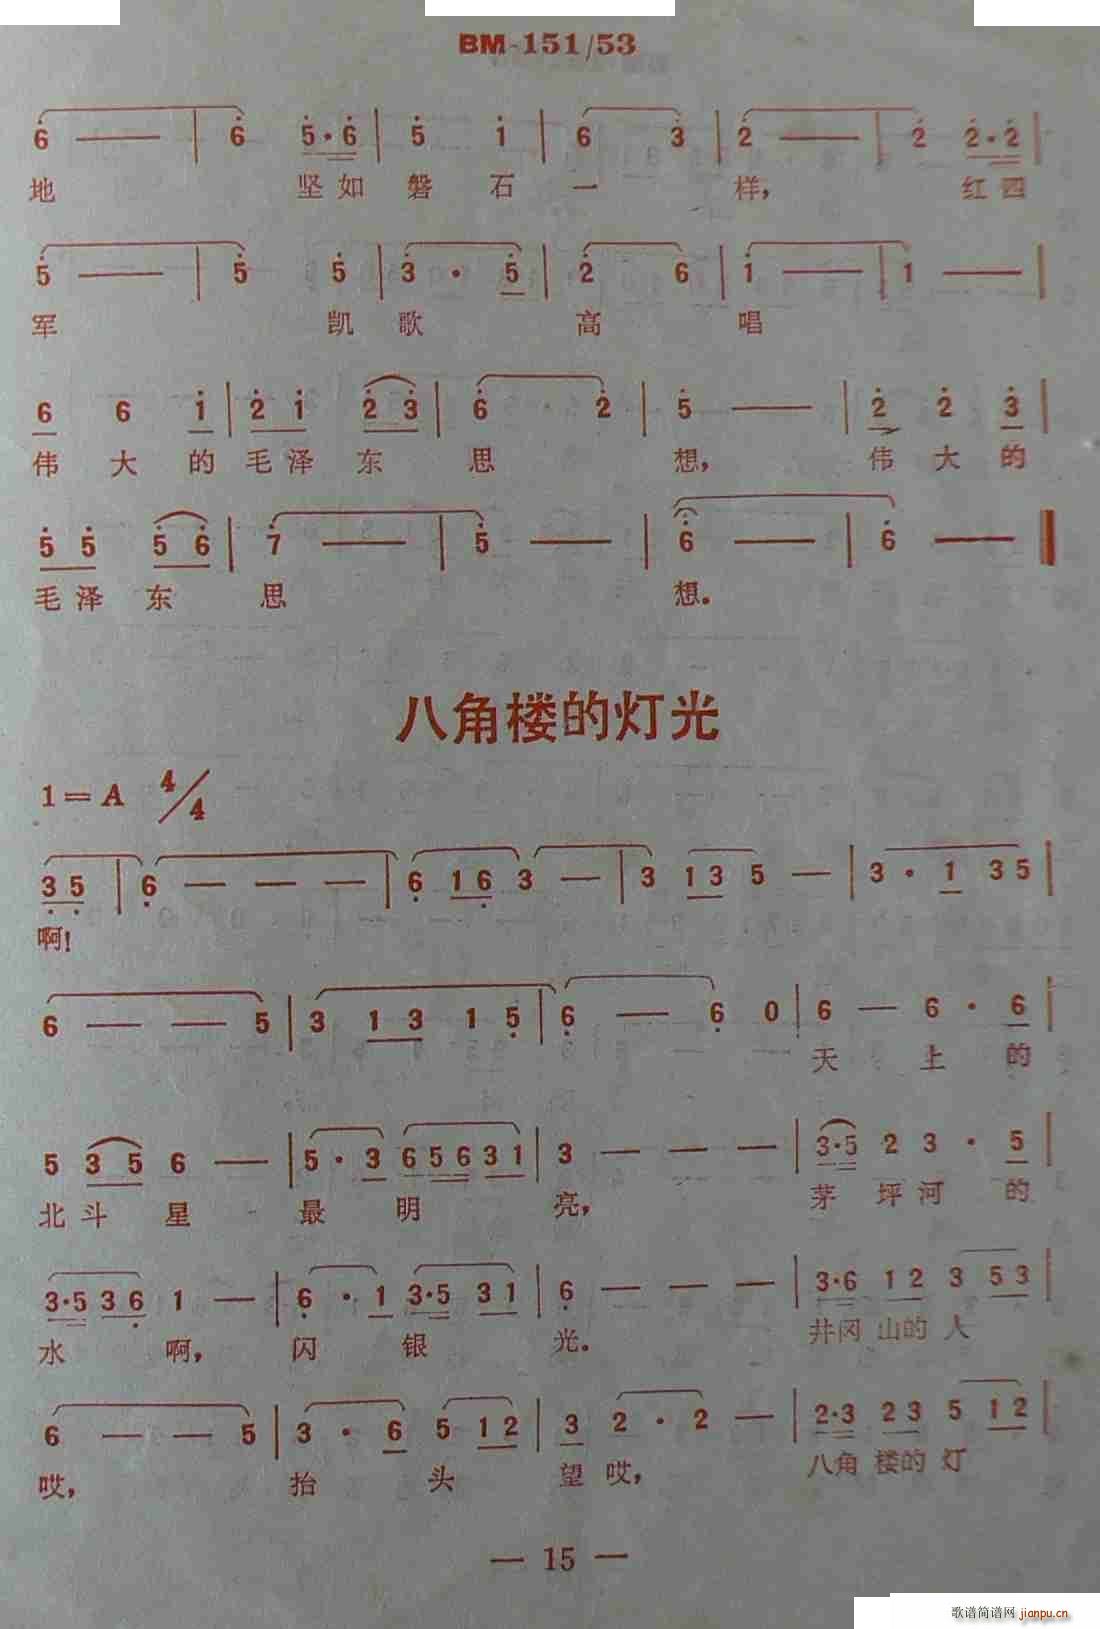 BM-151/53
6 — — | 6 5·6 | 5 1 | 6 3 | 2 — — | 2 2·2 |
地 坚如 磐 石 一 样， 红四
5 — — | 5 5 | 3 · 5 | 2 6 | 1 — — | 1 — — |
军 凯 歌 高 唱
6 6 1 | 2 1 2 3 | 6 · 2 | 5 — — | 2 2 3 |
伟 大 的 毛 泽 东 思 想， 伟 大 的
5 5 5 6 | 7 — — | 5 — — | 6 — — | 6 — —
毛 泽 东 思 想。
八角楼的灯光
1=A 4/4
3 5 | 6 — — — | 6 1 6 3 — | 3 1 3 5 — | 3 · 1 3 5 |
啊！
6 — — 5 | 3 1 3 1 5 | 6 — 6 0 | 6 — 6 · 6 |
天 上 的
5 3 5 6 — | 5 · 3 6 5 6 3 1 | 3 — — — | 3·5 2 3 · 5 |
北 斗 星 最 明 亮， 茅 坪 河 的
3·5 3 6 1 — | 6 · 1 3·5 3 1 | 6 — — — | 3·6 1 2 3 5 3 |
水 啊， 闪 银 光。 井冈 山的 人
6 — — 5 | 3 · 6 5 1 2 | 3 2 · 2 — | 2·3 2 3 5 1 2 |
哎， 抬 头 望 哎， 八角 楼的 灯
— 15 —
歌谱简谱网 jianpu.cn